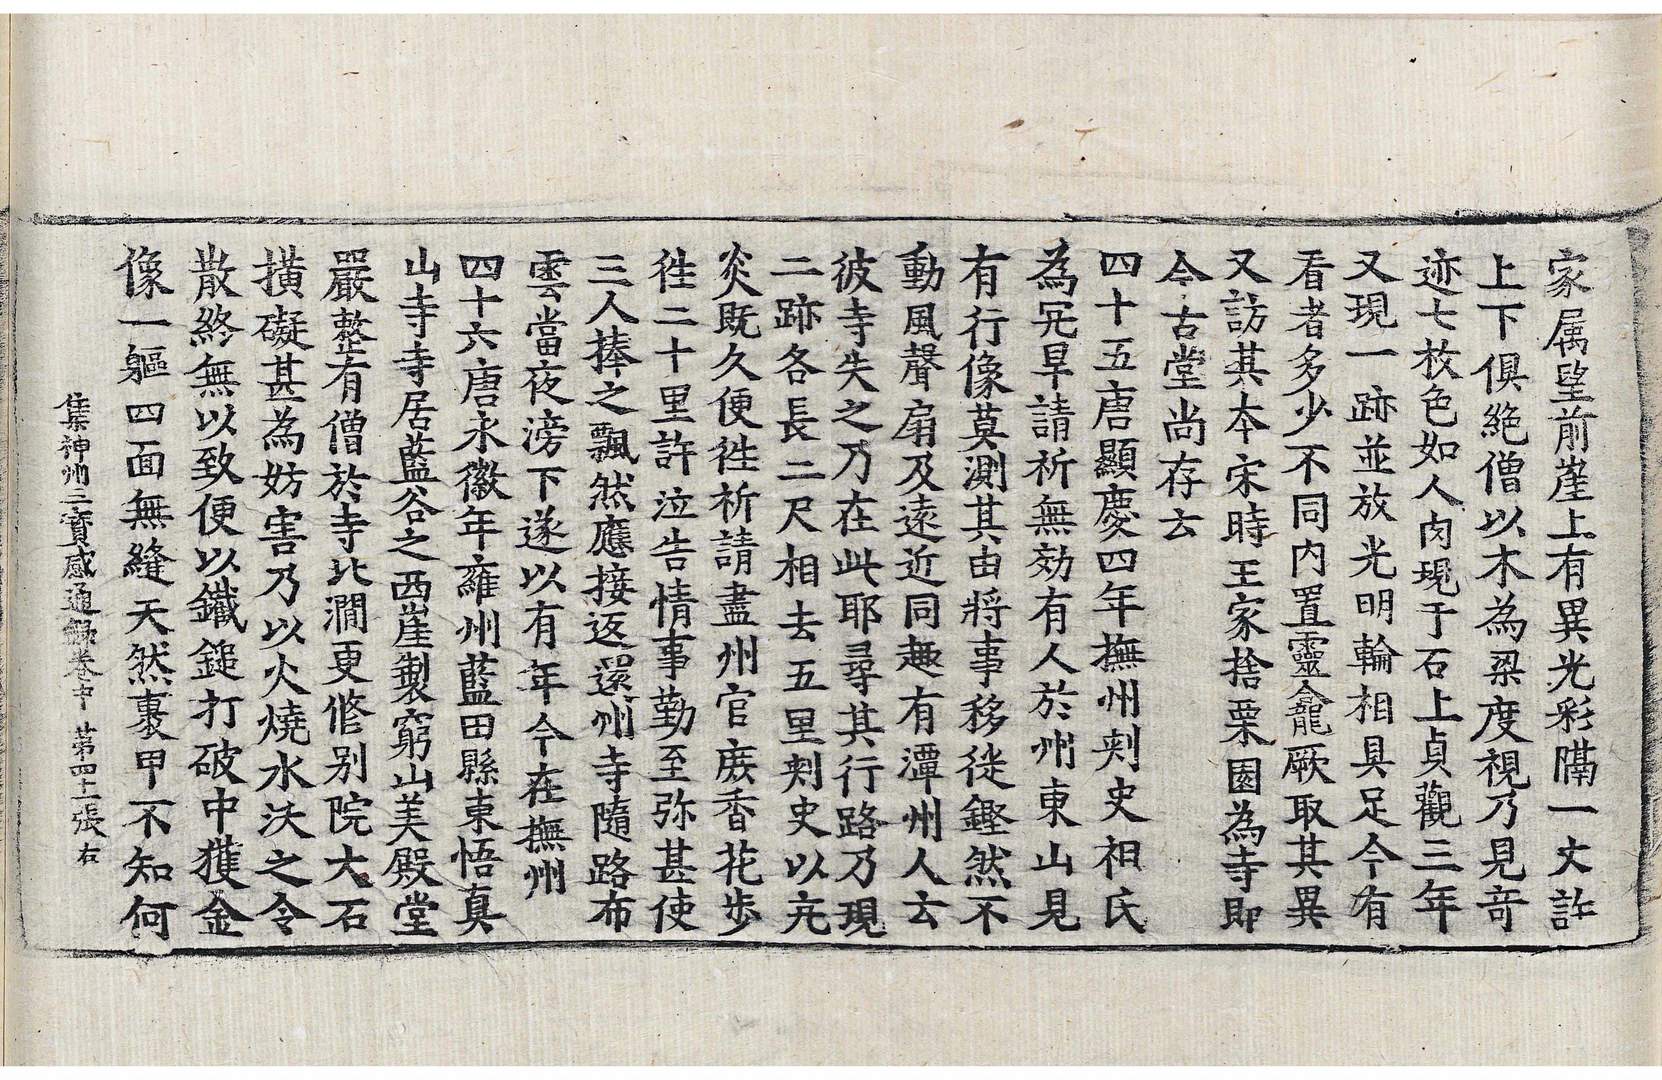 家属望前崖上有異光彩隔一丈許
上下俱絶僧以木為梁度視乃見竒
迹七枚色如人肉現于石上貞觀三年
又現一跡並放光明輪相具足今有
看者多少不同内置靈龕厥取其異
又訪其本宋時王家捨栗園為寺即
今古堂尚存云
四十五唐顯慶四年撫州刾史祖氏
為㝎旱請祈無効有人於州東山見
有行像莫測其由將事移徙鏗然不
動風聲扇及遠近同趣有潭州人云
彼寺失之乃在此耶尋其行路乃現
二跡各長二尺相去五里刾史以亢
炎既久便徃祈請盡州官庻香花步
徃二十里許泣告情事勤至弥甚使
三人捧之飄然應接返還州寺隨路布
雲當夜滂下遂以有年今在撫州
四十六唐永徽年雍州藍田縣東悟真
山寺寺居藍谷之西崖製窮山美殿堂
嚴整有僧於寺北澗更修别院大石
横礙甚為妨害乃以火燒水沃之令
散終無以致便以鐵鎚打破中獲金
像一軀四面無縫天然裹甲不知何
集神州三寳感通録卷中 第四十二張 右